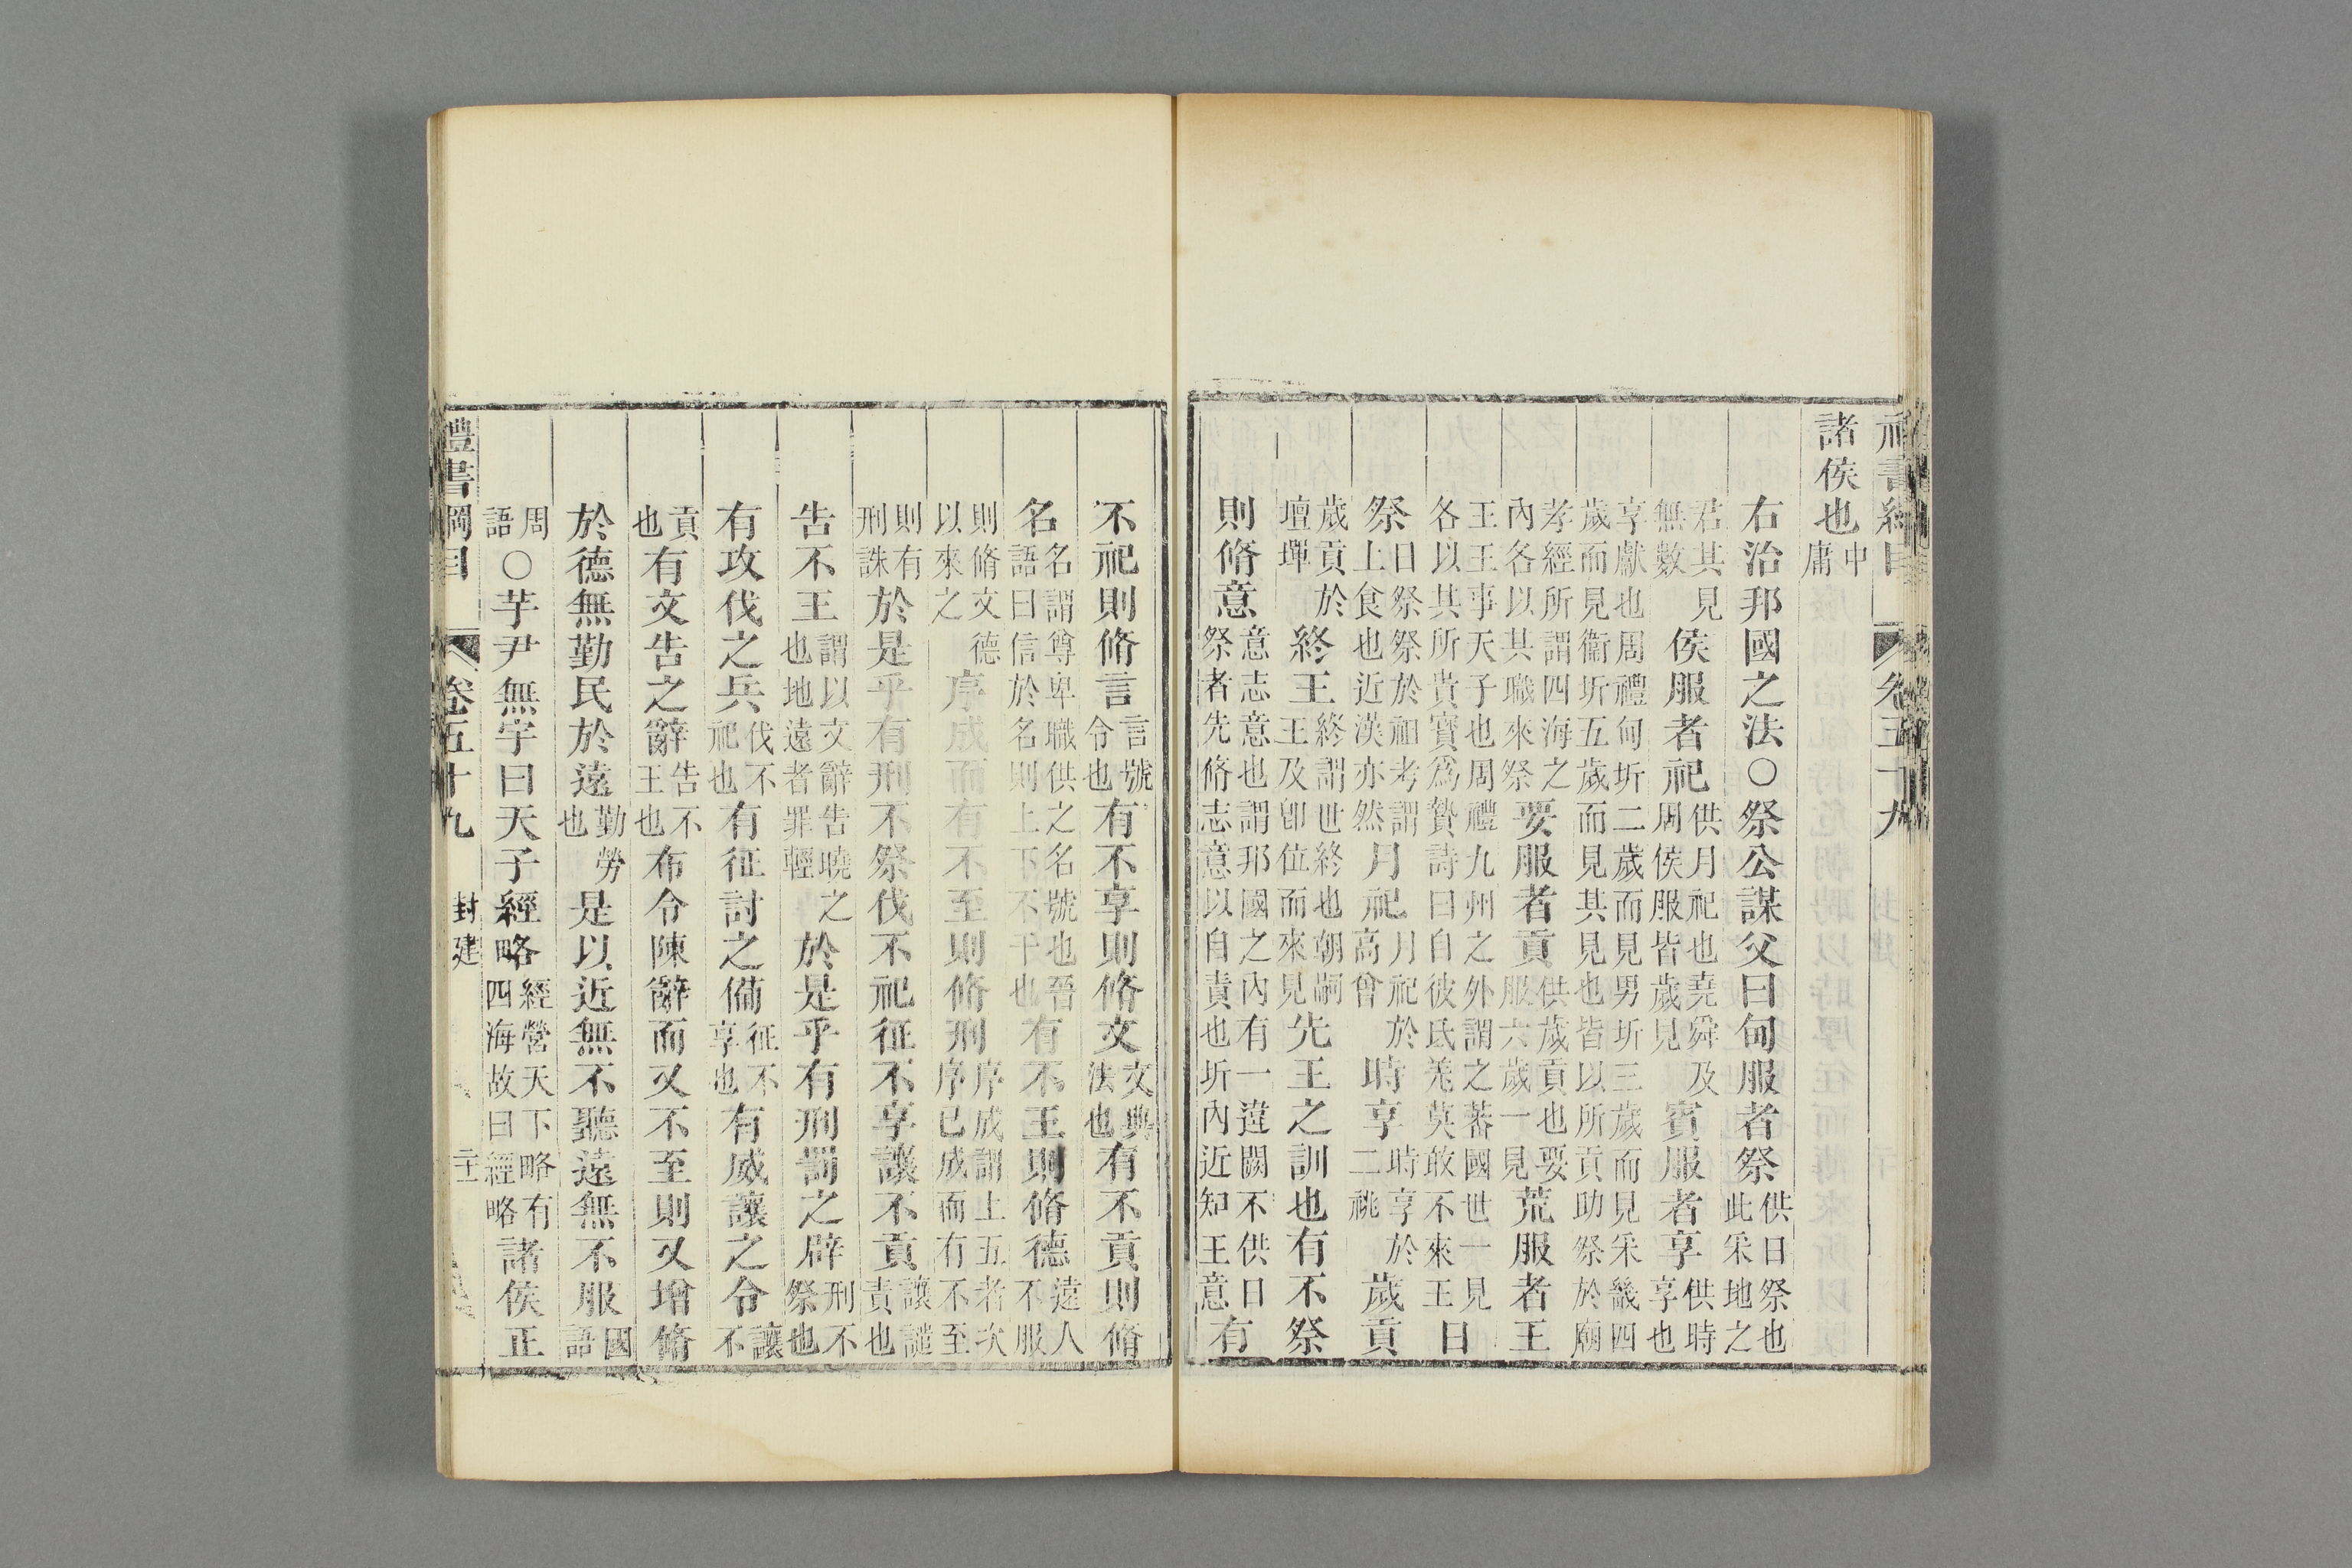 諸侯也中庸
右治邦國之法○祭公謀父曰甸服者祭供日祭也此采地之
君其見無數侯服者祀供月祀也堯舜及周侯服皆歲見賓服者享供時享也
享獻也周禮甸圻二歲而見男圻三歲而見采畿四歲而見衞圻五歲而見其見也皆以所貢助祭於廟
孝經所謂四海之內各以其職來祭要服者貢供歲貢也要服六歲一見荒服者王
王王事天子也周禮九州之外謂之蕃國世一見各以其所貴寶爲贄詩曰自彼氐羌莫敢不來王日
祭日祭祭於祖考謂上食也近漢亦然月祀月祀於高曾時享時享於二祧歲貢
歲貢於壇墠終王終謂世終也朝嗣王及卽位而來見先王之訓也有不祭
則脩意意志意也謂邦國之內有一違闕不供日祭者先脩志意以自責也圻內近知王意有
不祀則脩言言號令也有不享則脩文文典法也有不貢則脩
名名謂尊卑職供之名號也晉語曰信於名則上下不干也有不王則脩德遠人不服
則脩文德以來之序成而有不至則脩刑序成謂上五者次序已成而有不至
則有刑誅於是乎有刑不祭伐不祀征不享讓不貢讓譴責也
告不王謂以文辭告曉之也地遠者罪輕於是乎有刑罰之辟刑不祭也
有攻伐之兵伐不祀也有征討之備征不享也有威讓之令讓不
貢也有文告之辭告不王也布令陳辭而又不至則又增脩
於德無勤民於遠勤勞也是以近無不聽遠無不服國語
周語○芋尹無宇曰天子經略經營天下略有四海故曰經略諸侯正
禮書綱目 卷五十九 封建